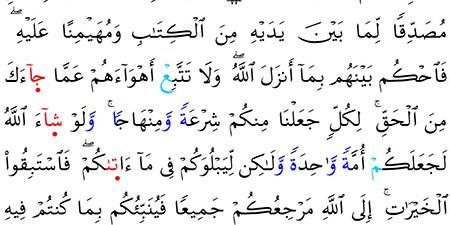 مُصَدِّقٗا لِّمَا بَيۡنَ يَدَيۡهِ مِنَ ٱلۡكِتَٰبِ وَمُهَيۡمِنًا عَلَيۡهِۖ
فَٱحۡكُم بَيۡنَهُم بِمَآ أَنزَلَ ٱللَّهُۖ وَلَا تَتَّبِعۡ أَهۡوَآءَهُمۡ عَمَّا جَآءَكَ
مِنَ ٱلۡحَقِّۚ لِكُلّٖ جَعَلۡنَا مِنكُمۡ شِرۡعَةٗ وَمِنۡهَاجٗاۚ وَلَوۡ شَآءَ ٱللَّهُ
لَجَعَلَكُمۡ أُمَّةٗ وَٰحِدَةٗ وَلَٰكِن لِّيَبۡلُوَكُمۡ فِي مَآ ءَاتَىٰكُمۡۖ فَٱسۡتَبِقُواْ
ٱلۡخَيۡرَٰتِۚ إِلَى ٱللَّهِ مَرۡجِعُكُمۡ جَمِيعٗا فَيُنَبِّئُكُم بِمَا كُنتُمۡ فِيهِ